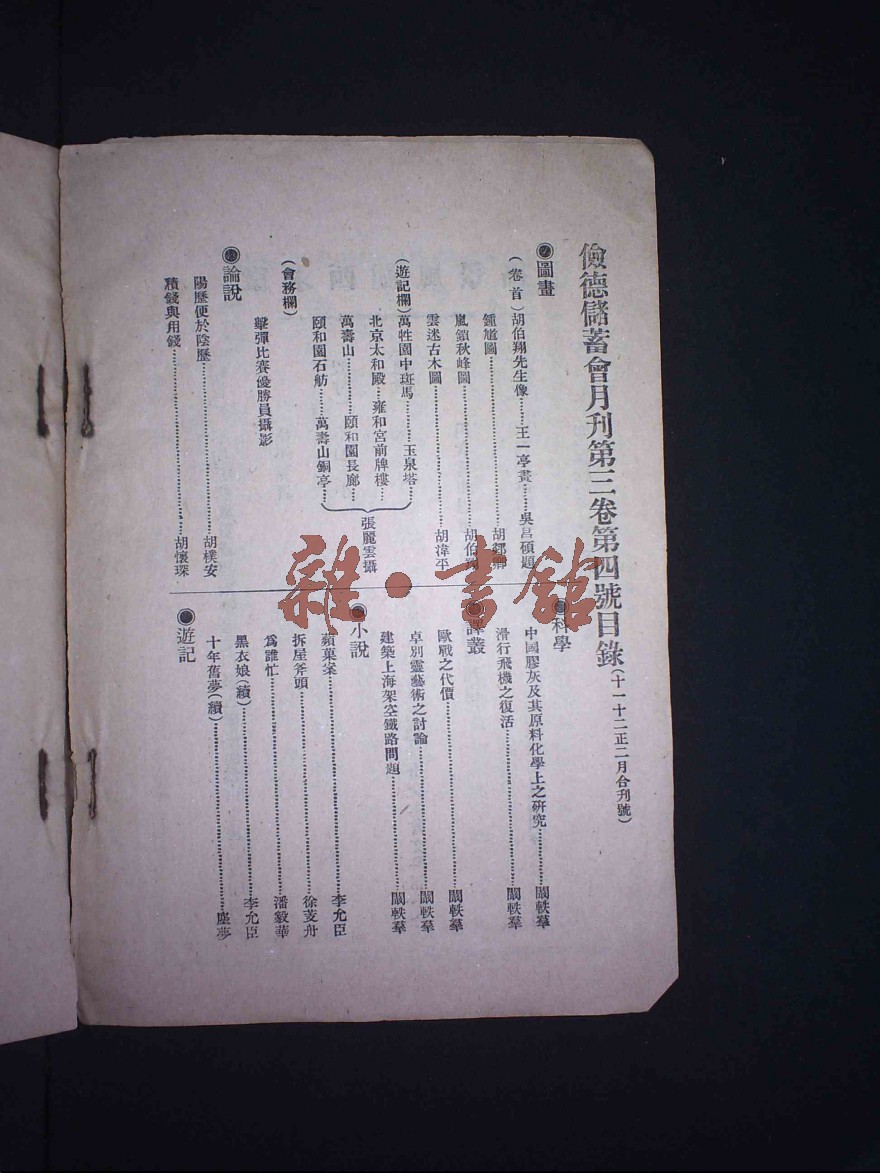 儉德儲蓄會月刊第三卷第四號目錄(十一十二正二月合刊號)
●圖畫
(卷首)胡伯翔先生像……王一亭畫……吳昌碩題
鍾馗圖……胡郯卿
嵐鎖秋峰圖……胡伯翔
雲迷古木圖……胡渭平
(遊記欄)萬牲園中斑馬……玉泉塔……
北京太和殿……雍和宮前牌樓……
萬壽山……頤和園長廊……
頤和園石舫……萬壽山銅亭……
張麗雲攝
(會務欄)
擊彈比賽優勝員攝影
●論說
陽曆便於陰曆……胡樸安
積錢與用錢……胡懷琛
●科學
中國膠灰及其原料化學上之研究……闞軼羣
滑行飛機之復活……闞軼羣
●譯叢
歐戰之代價……闞軼羣
卓別靈藝術之討論……闞軼羣
建築上海架空鐵路問題……闞軼羣
●小說
蘋菓案……李允臣
拆屋斧頭……徐芰舟
為誰忙……潘毅華
黑衣娘(續)……李允臣
●遊記
十年舊夢(續)……塵夢
雜·書館